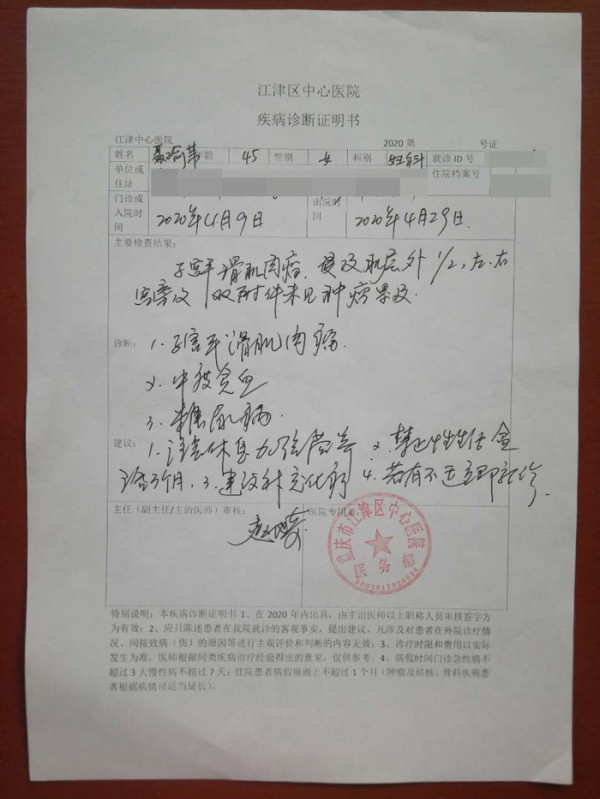 江津区中心医院
疾病诊断证明书
江津中心医院 2020 第 号证
姓名 年龄 45 性别 女 科别 妇科 就诊 ID 号
单位或住址 住院档案号
门诊或入院时间 2020年4月9日 出院时间 2020年4月29日
主要检查结果:
子宫平滑肌肉瘤 侵及肌层外1/2, 左.右
宫旁及 双附件未见肿瘤累及.
诊断: 1.子宫平滑肌肉瘤.
2.中度贫血
3.糖尿病.
建议: 1.注意休息加强营养 2.禁止性生活盆
浴3个月. 3.建议补充化疗 4.若有不适立即就诊.
主任(副主任/主治医师)审核: 医院专用章:
重庆市江津区中心医院
医务部
特别说明:本疾病诊断证明书 1、在 2020 年内出具,由主治医师以上职称人员审核签字方
为有效;2、应只陈述患者在我院就诊的客观事实,提出建议,凡涉及对患者在外院诊疗情
况、间接致病(伤)的原因等进行主观评价和判断的内容无效;3、诊疗时限和费用以实际
发生为准,医师根据同类疾病治疗经验得出的意见,仅供参考。4、病假时间门诊急性病不
超过 3 天慢性病不超过 7 天;住院患者病假原则上不超过 1 个月(肿瘤及结核、骨科疾病患
者根据病情可适当延长)。